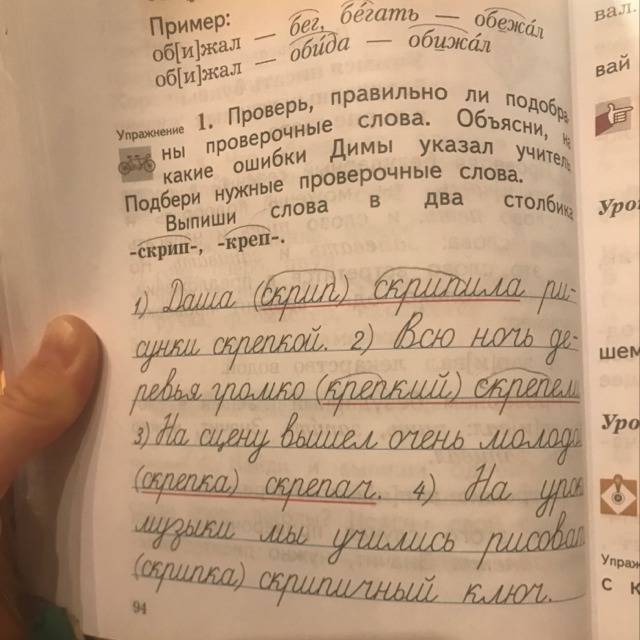 Пример:
об[и]жал — бег, бе́гать — обежа́л
об[и]жал — оби́да — обижа́л
Упражнение 1. Проверь, правильно ли подобра
ны проверочные слова. Объясни, н
какие ошибки Димы указал учитель
Подбери нужные проверочные слова.
Выпиши слова в два столбика
-скрип-, -креп-.
1) Даша (скрип) скрипила ри-
сунки скрепкой. 2) Всю ночь де-
ревья громко (крепкий) скрепели
3) На сцену вышел очень молодо
(скрепка) скрепач. 4) На урок
музыки мы учились рисоват
(скрипка) скрипичный ключ.
94
вал.
вай
Уро
шем
Уро
Упраж
с к